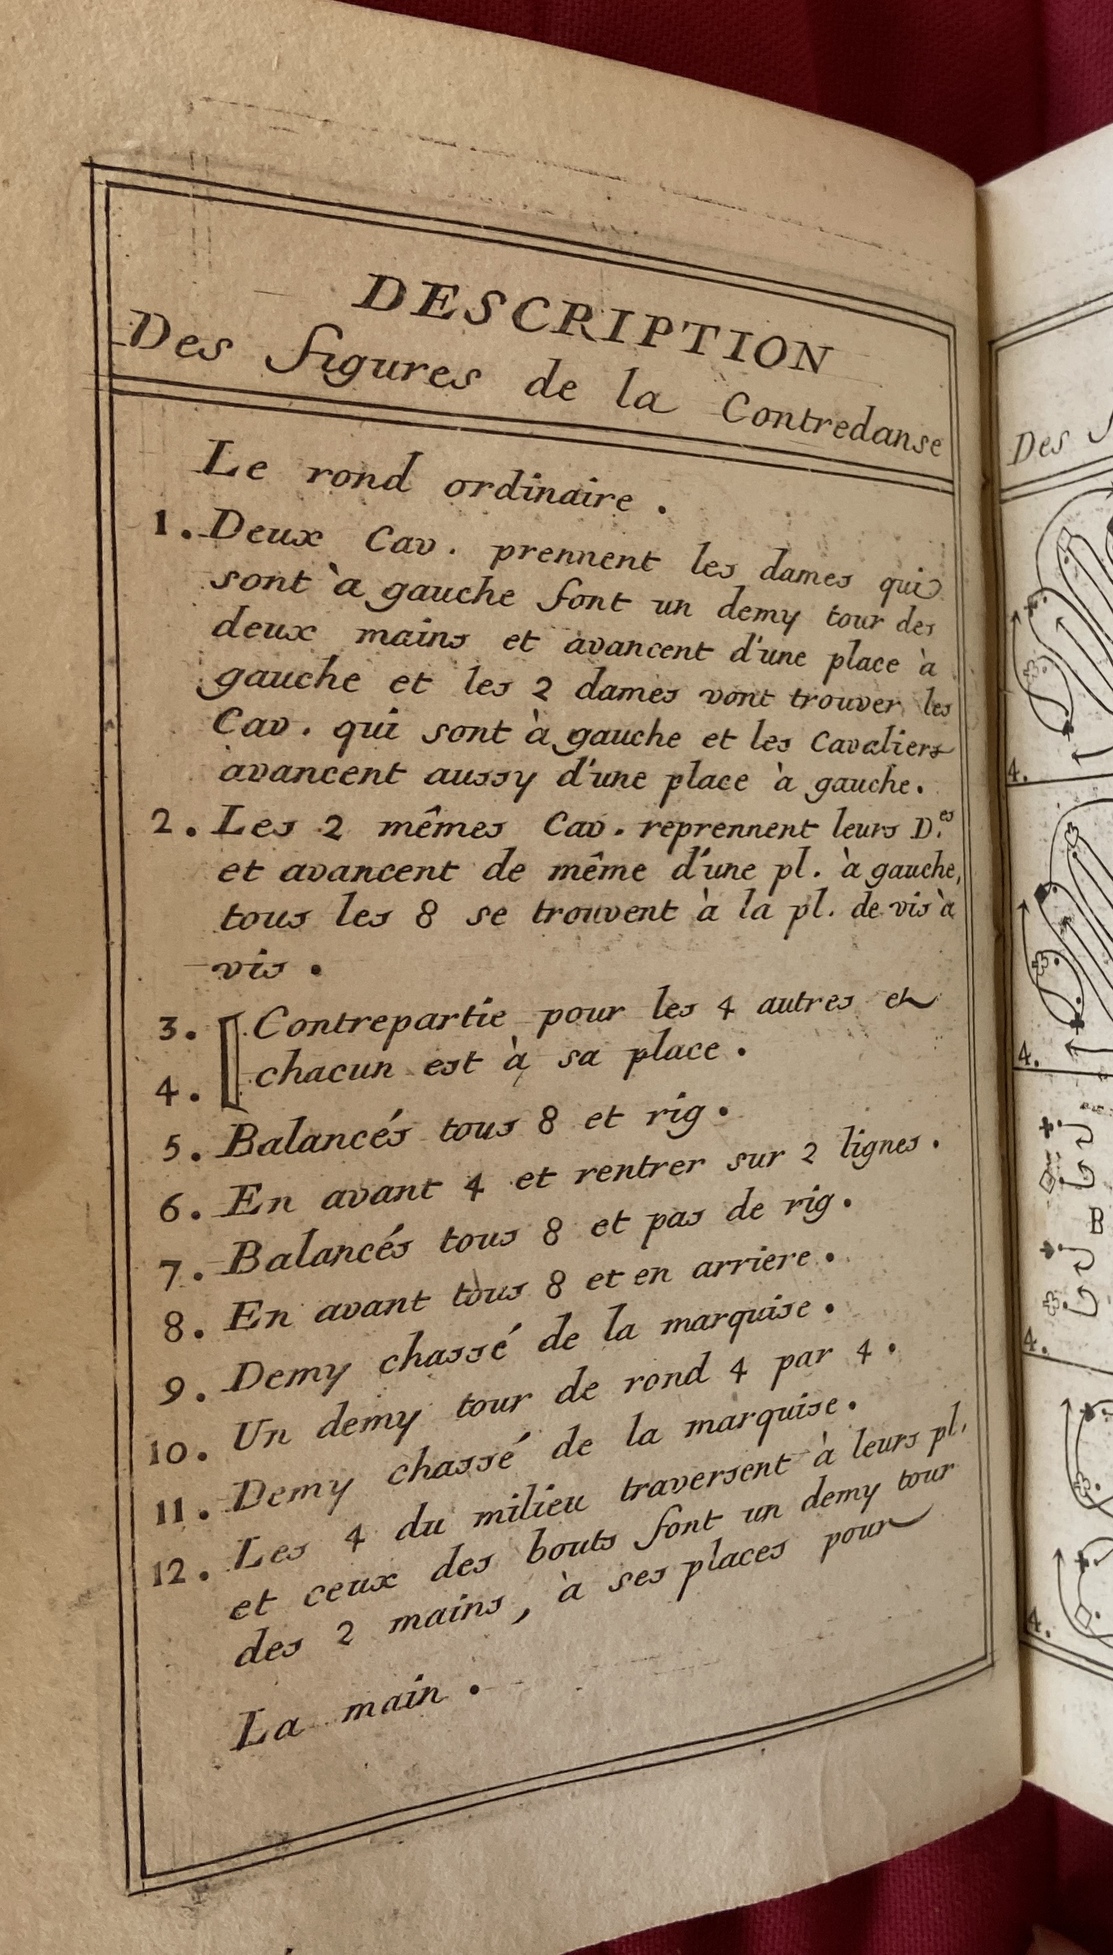 DESCRIPTION
Des figures de la Contredanse
Le rond ordinaire .
1. Deux Cav. prennent les dames qui
sont à gauche font un demy tour des
deux mains et avancent d'une place à
gauche et les 2 dames vont trouver les
Cav. qui sont à gauche et les Cavaliers
avancent aussy d'une place à gauche.
2. Les 2 mêmes Cav. reprennent leurs D.es
et avancent de même d'une pl. à gauche,
tous les 8 se trouvent à la pl. de vis à
vis .
3. Contrepartie pour les 4 autres et
4. chacun est à sa place .
5. Balancés tous 8 et rig.
6. En avant 4 et rentrer sur 2 lignes.
7. Balancés tous 8 et pas de rig.
8. En avant tous 8 et en arriere.
9. Demy chassé de la marquise.
10. Un demy tour de rond 4 par 4.
11. Demy chassé de la marquise.
12. Les 4 du milieu traversent à leurs pl.
et ceux des bouts font un demy tour
des 2 mains, à ses places pour
La main .
Des
4.
4.
B
4.
4.